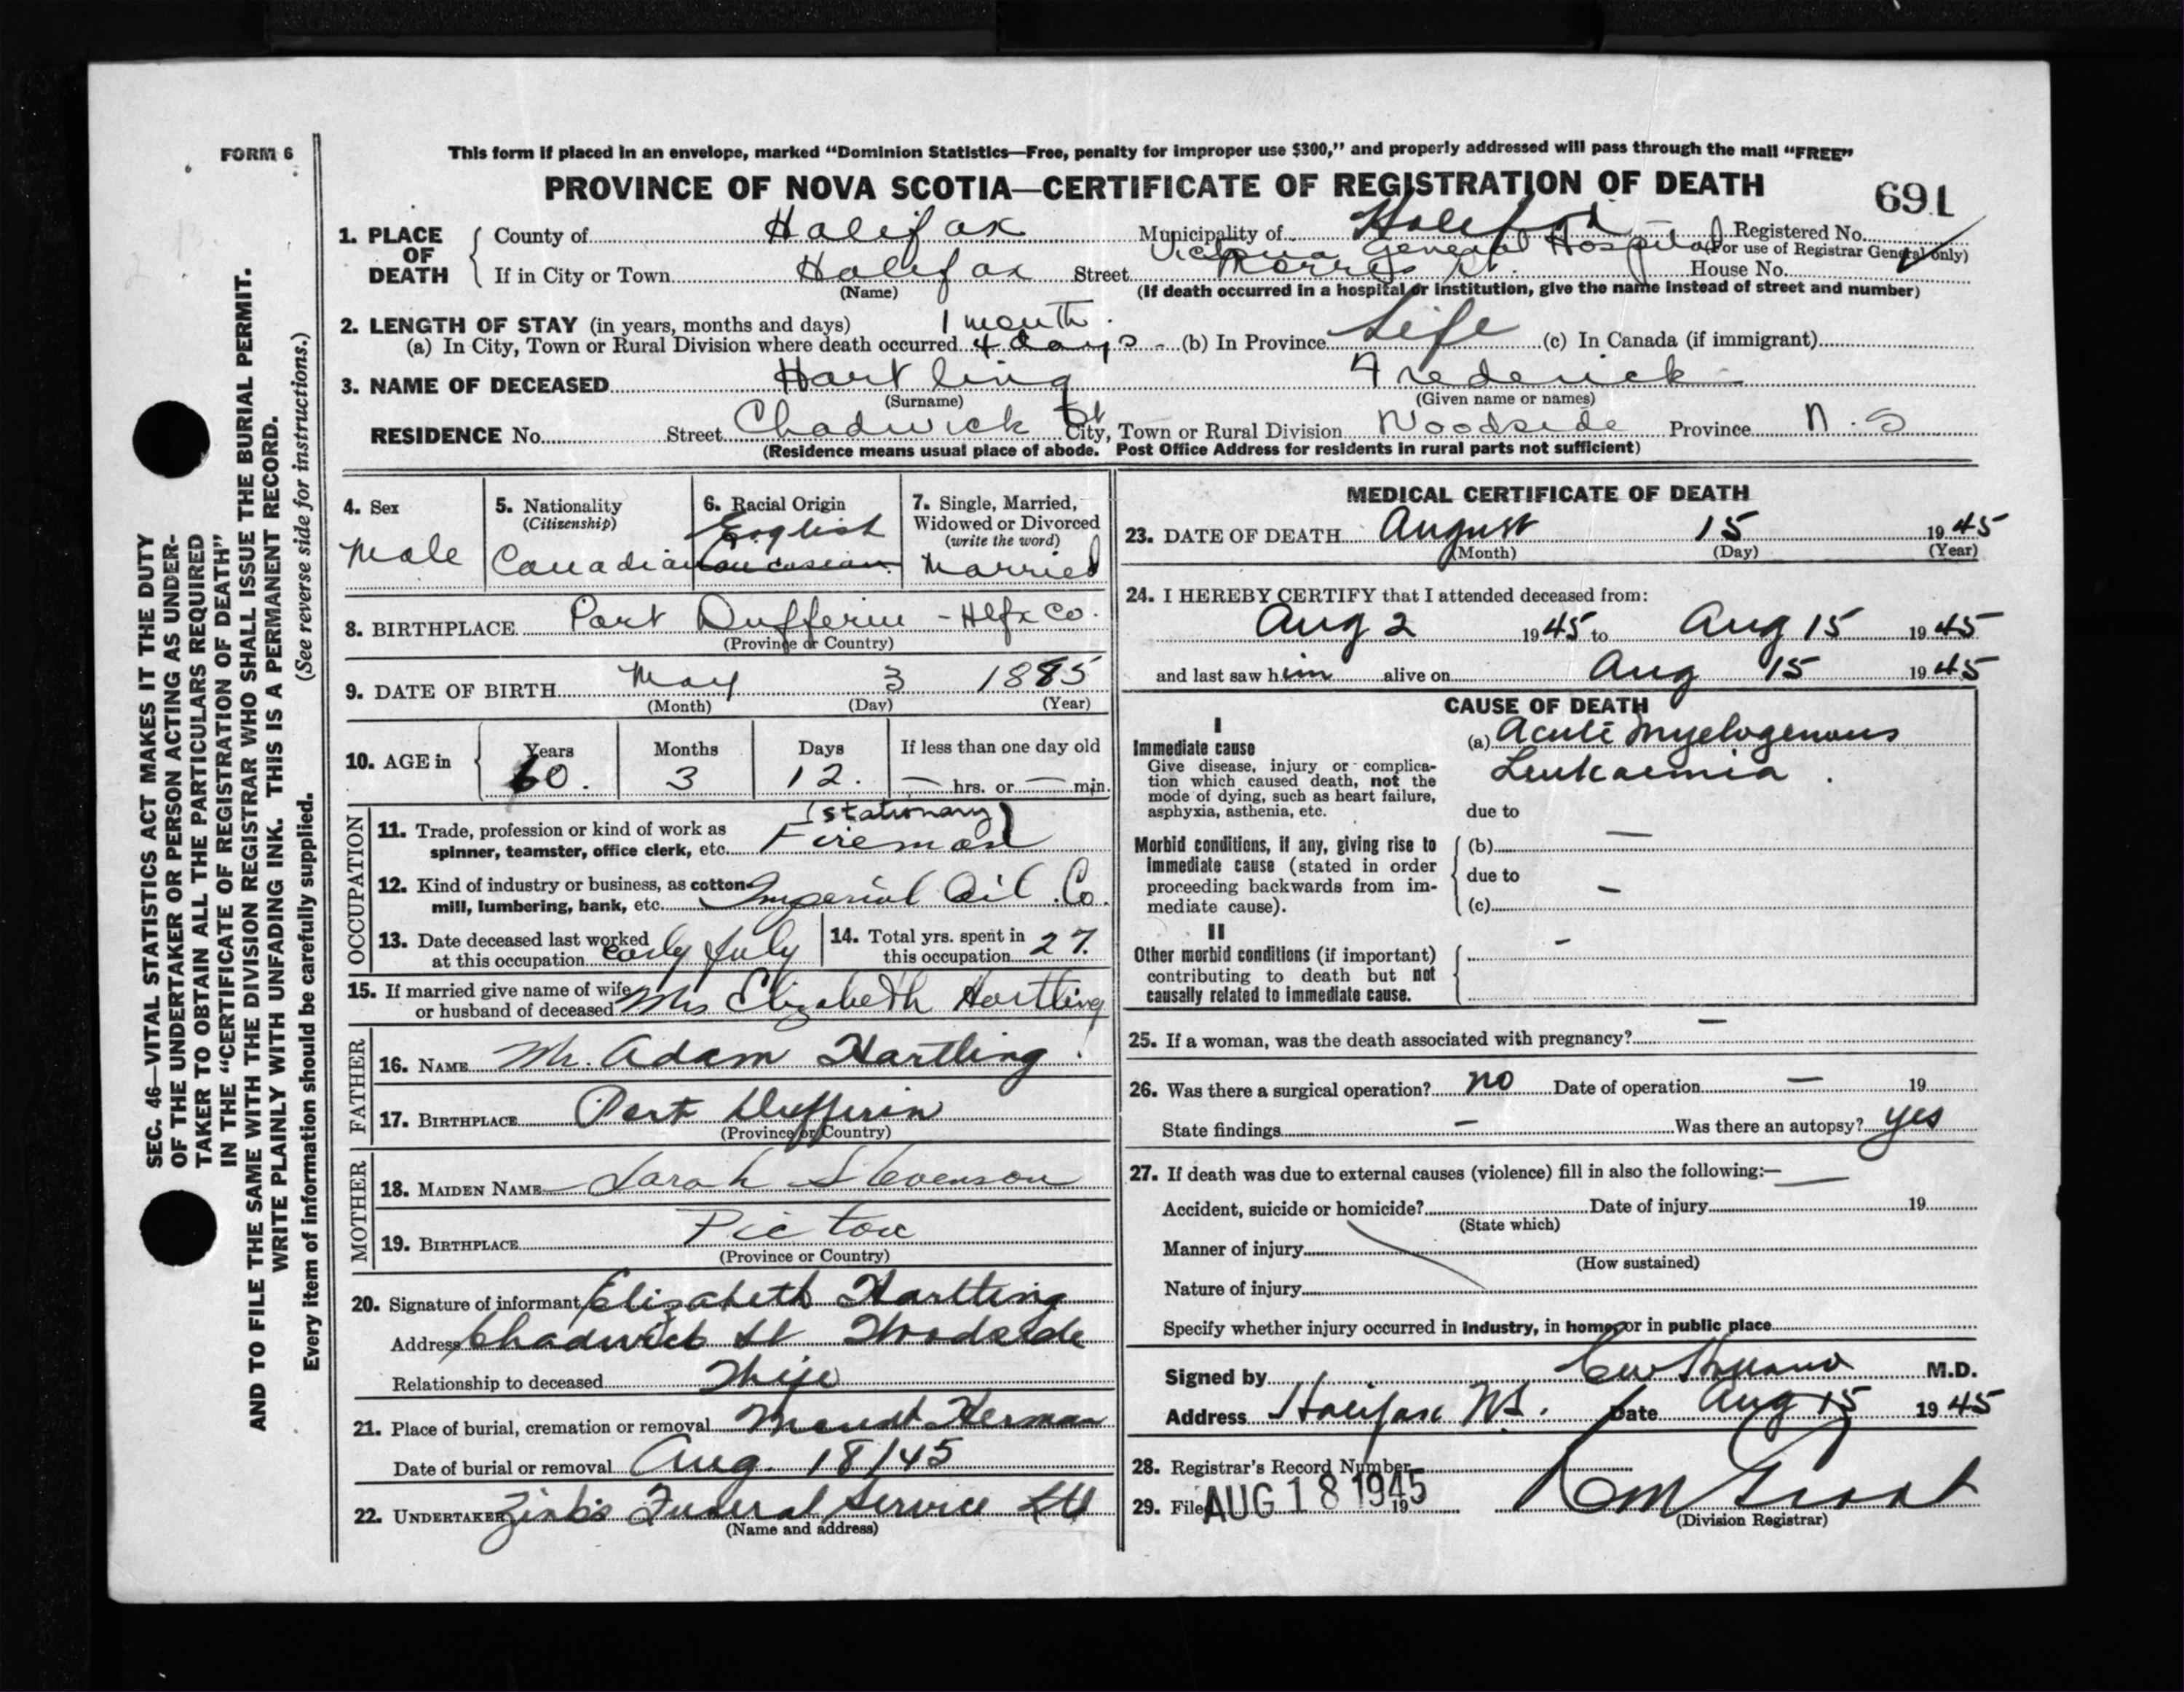 FORM 6
This form if placed in an envelope, marked "Dominion Statistics—Free, penalty for improper use $300," and properly addressed will pass through the mail "FREE"
PROVINCE OF NOVA SCOTIA—CERTIFICATE OF REGISTRATION OF DEATH
691
1. PLACE OF DEATH County of Halifax Municipality of Halifax Registered No.
(For use of Registrar General only)
Victoria General Hospital
If in City or Town Halifax Street Morris St. House No.
(Name) (If death occurred in a hospital or institution, give the name instead of street and number)
2. LENGTH OF STAY (in years, months and days) 1 month
(a) In City, Town or Rural Division where death occurred 4 days (b) In Province Life (c) In Canada (if immigrant)
3. NAME OF DECEASED Hartling Frederick
(Surname) (Given name or names)
RESIDENCE No. Street Chadwick St City, Town or Rural Division Woodside Province N.S
(Residence means usual place of abode. Post Office Address for residents in rural parts not sufficient)
SEC. 46—VITAL STATISTICS ACT MAKES IT THE DUTY
OF THE UNDERTAKER OR PERSON ACTING AS UNDER-
TAKER TO OBTAIN ALL THE PARTICULARS REQUIRED
IN THE "CERTIFICATE OF REGISTRATION OF DEATH"
AND TO FILE THE SAME WITH THE DIVISION REGISTRAR WHO SHALL ISSUE THE BURIAL PERMIT.
WRITE PLAINLY WITH UNFADING INK. THIS IS A PERMANENT RECORD.
Every item of information should be carefully supplied. (See reverse side for instructions.)
4. Sex Male
5. Nationality
(Citizenship)
Canadian
6. Racial Origin
English
Caucasian
7. Single, Married,
Widowed or Divorced
(write the word)
Married
8. BIRTHPLACE Port Dufferin - Hlfx Co.
(Province or Country)
9. DATE OF BIRTH May 3 1885
(Month) (Day) (Year)
10. AGE in Years Months Days If less than one day old
60. 3 12. — hrs. or — min.
OCCUPATION
(stationary)
11. Trade, profession or kind of work as
spinner, teamster, office clerk, etc. Fireman
12. Kind of industry or business, as cotton
mill, lumbering, bank, etc. Imperial Oil Co.
13. Date deceased last worked
at this occupation early July
14. Total yrs. spent in
this occupation 27.
15. If married give name of wife
or husband of deceased Mrs Elizabeth Hartling
FATHER
16. NAME Mr. Adam Hartling
17. BIRTHPLACE Port Dufferin
(Province or Country)
MOTHER
18. MAIDEN NAME Sarah Stevenson
19. BIRTHPLACE Pictou
(Province or Country)
20. Signature of informant Elizabeth Hartling
Address Chadwick St Woodside
Relationship to deceased Wife
21. Place of burial, cremation or removal Mount Herman
Date of burial or removal Aug. 18/45
22. UNDERTAKER Zink's Funeral Service Ltd
(Name and address)
MEDICAL CERTIFICATE OF DEATH
23. DATE OF DEATH August 15 1945
(Month) (Day) (Year)
24. I HEREBY CERTIFY that I attended deceased from:
Aug 2 1945 to Aug 15 1945
and last saw him alive on Aug 15 1945
CAUSE OF DEATH
I
Immediate cause
Give disease, injury or complica-
tion which caused death, not the
mode of dying, such as heart failure,
asphyxia, asthenia, etc.
(a) Acute Myelogenous
Leukaemia.
due to
Morbid conditions, if any, giving rise to
immediate cause (stated in order
proceeding backwards from im-
mediate cause).
(b) —
due to
(c) —
II
Other morbid conditions (if important)
contributing to death but not
causally related to immediate cause.
—
25. If a woman, was the death associated with pregnancy? —
26. Was there a surgical operation? no Date of operation — 19
State findings — Was there an autopsy? yes
27. If death was due to external causes (violence) fill in also the following:—
Accident, suicide or homicide? Date of injury 19
(State which)
Manner of injury
(How sustained)
Nature of injury
Specify whether injury occurred in industry, in home, or in public place
Signed by M.D.
Address Halifax N.S. Date Aug 15 1945
28. Registrar's Record Number
29. Filed AUG 18 1945 19
(Division Registrar)